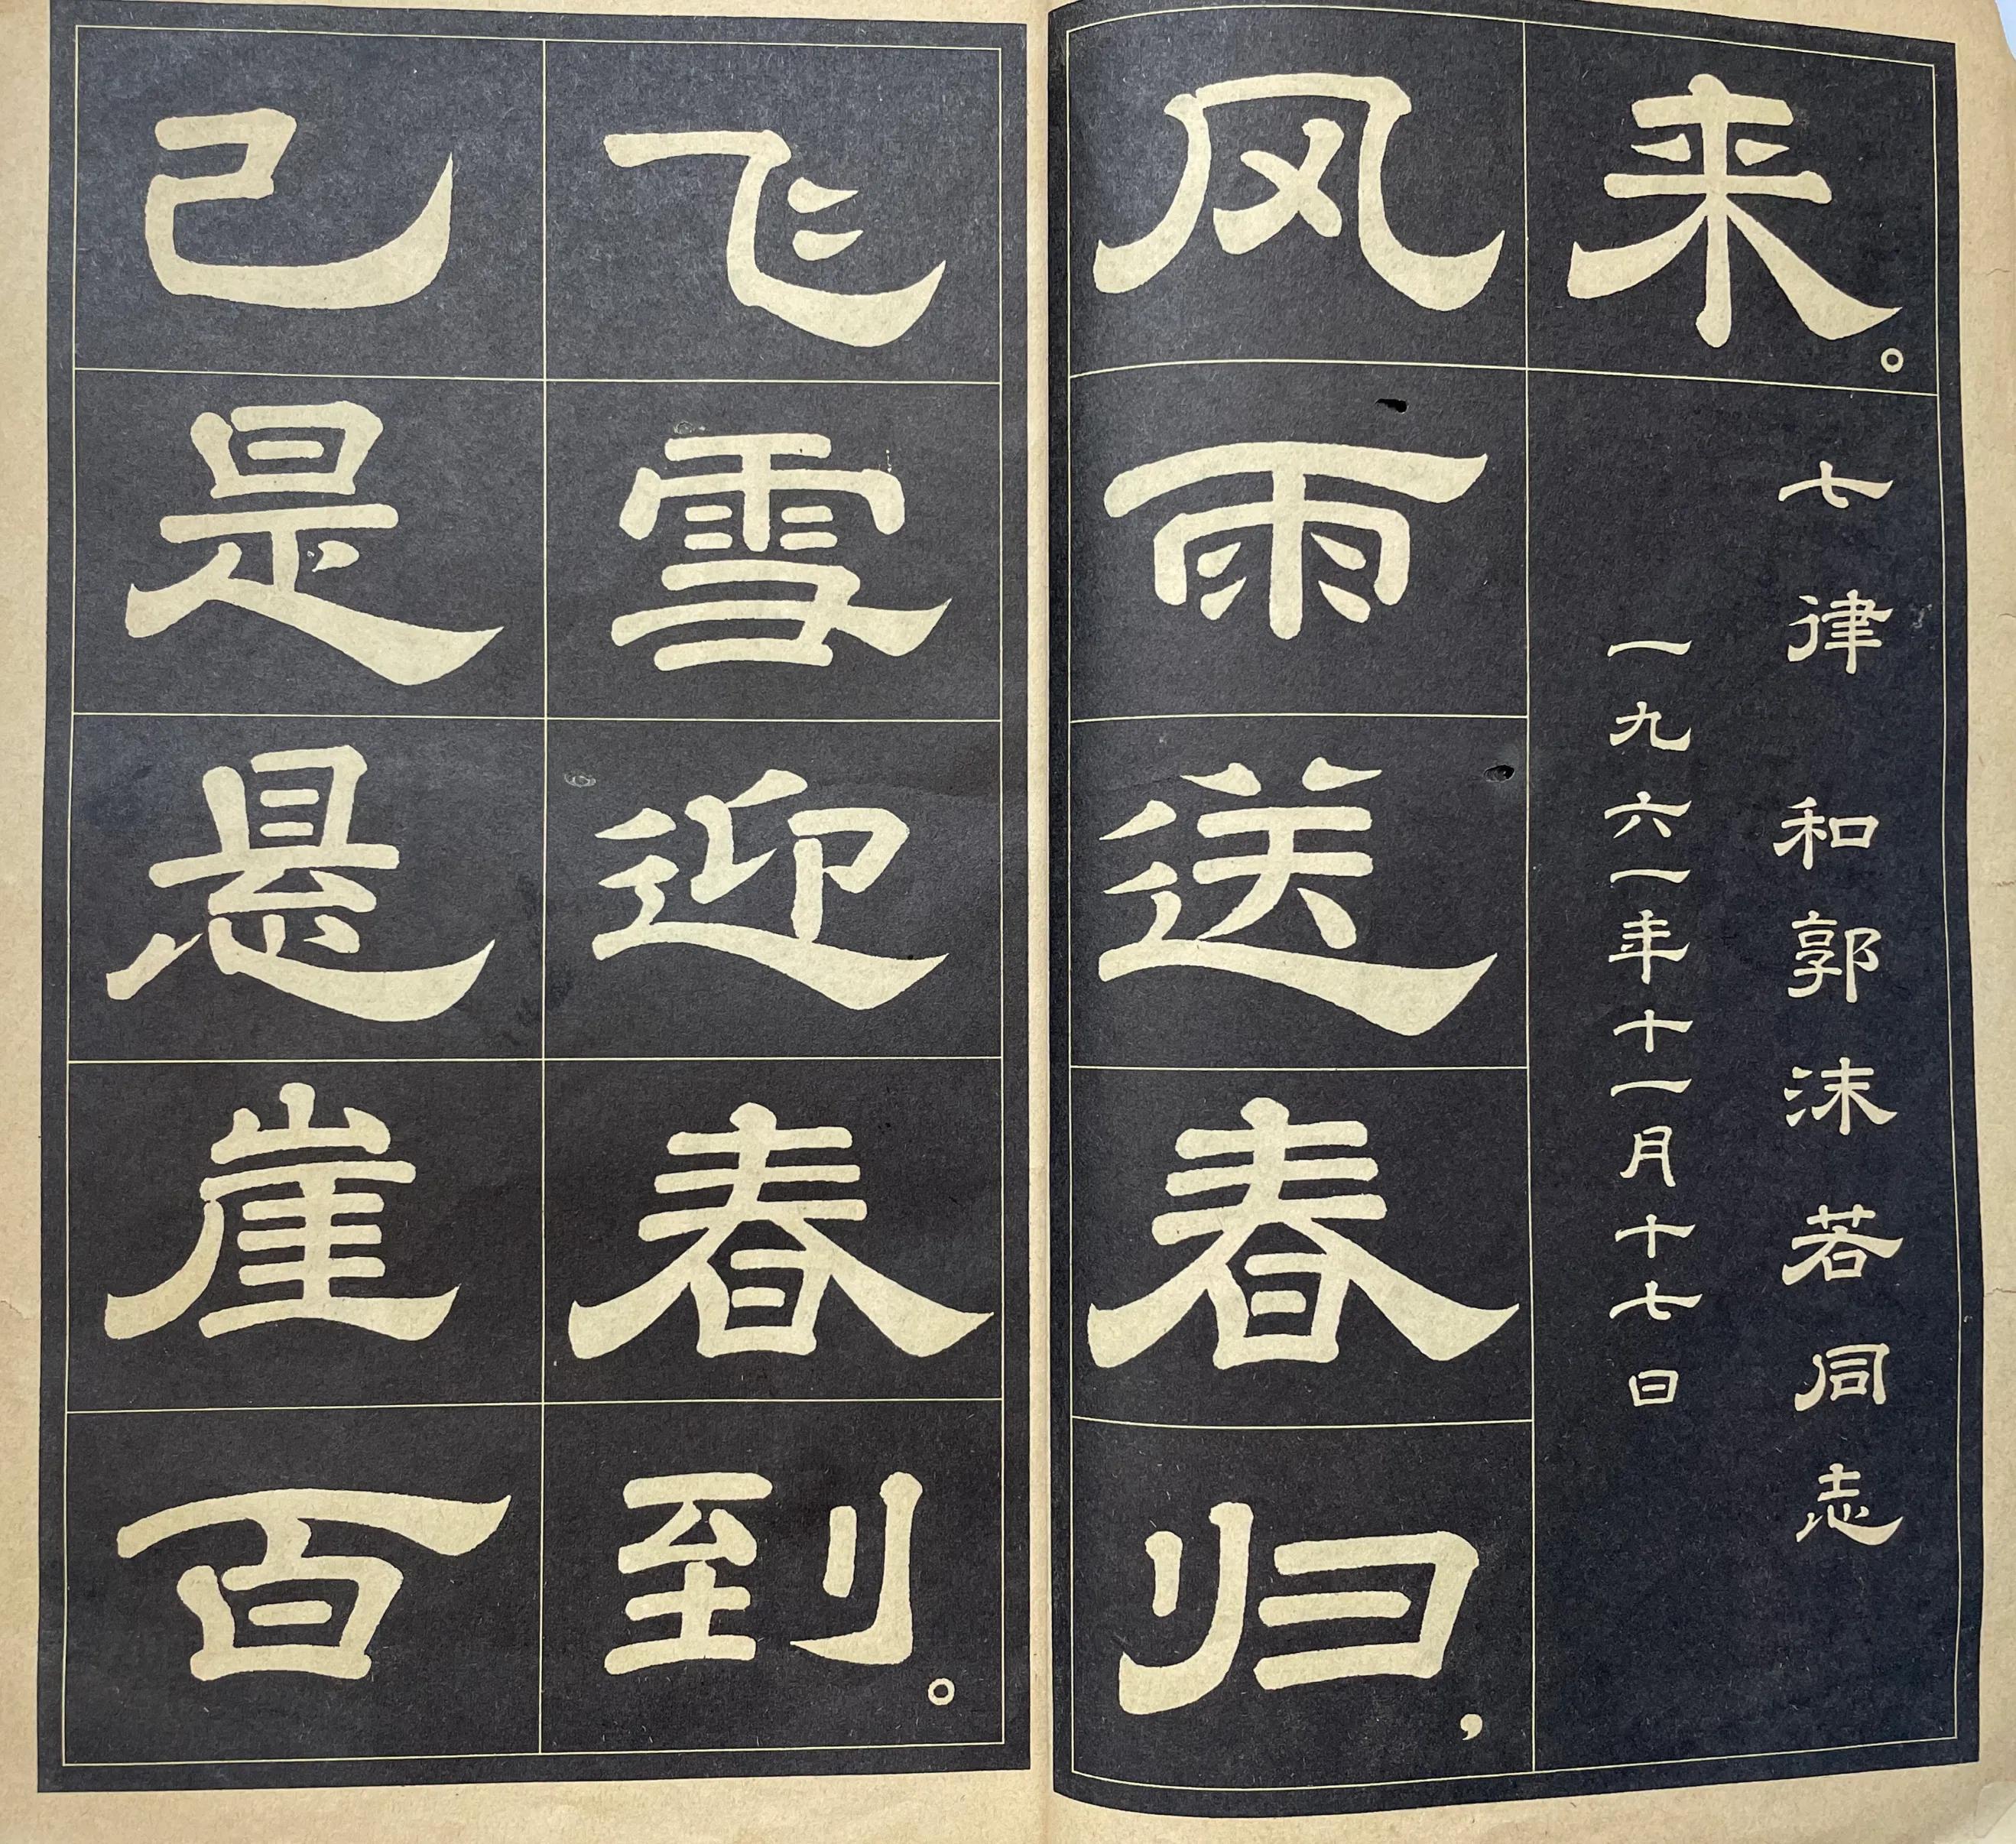 来。
七律 和郭沫若同志
一九六一年十一月十七日
风雨送春归，
飞雪迎春到。
己是悬崖百